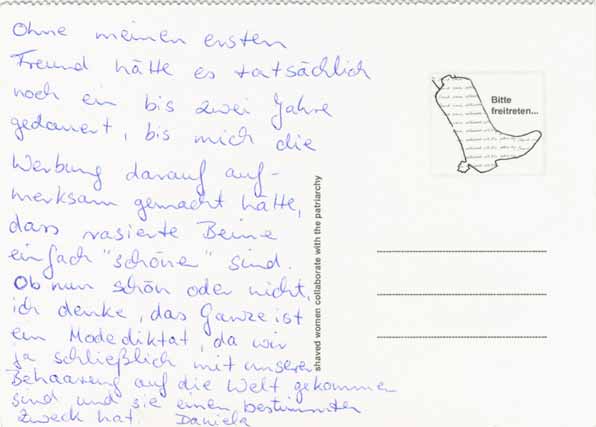 Ohne meinen ersten
Freund hätte es tatsächlich
noch ein bis zwei Jahre
gedauert, bis mich die
Werbung darauf auf-
merksam gemacht hätte,
dass rasierte Beine
einfach "schöner" sind.
Ob nun schön oder nicht,
ich denke, das Ganze ist
ein Modediktat, da wir
ja schließlich mit unserer
Behaarung auf die Welt gekommen
sind und sie einen bestimmten
Zweck hat. Daniela
shaved women collaborate with the patriarchy
Bitte
freitreten...